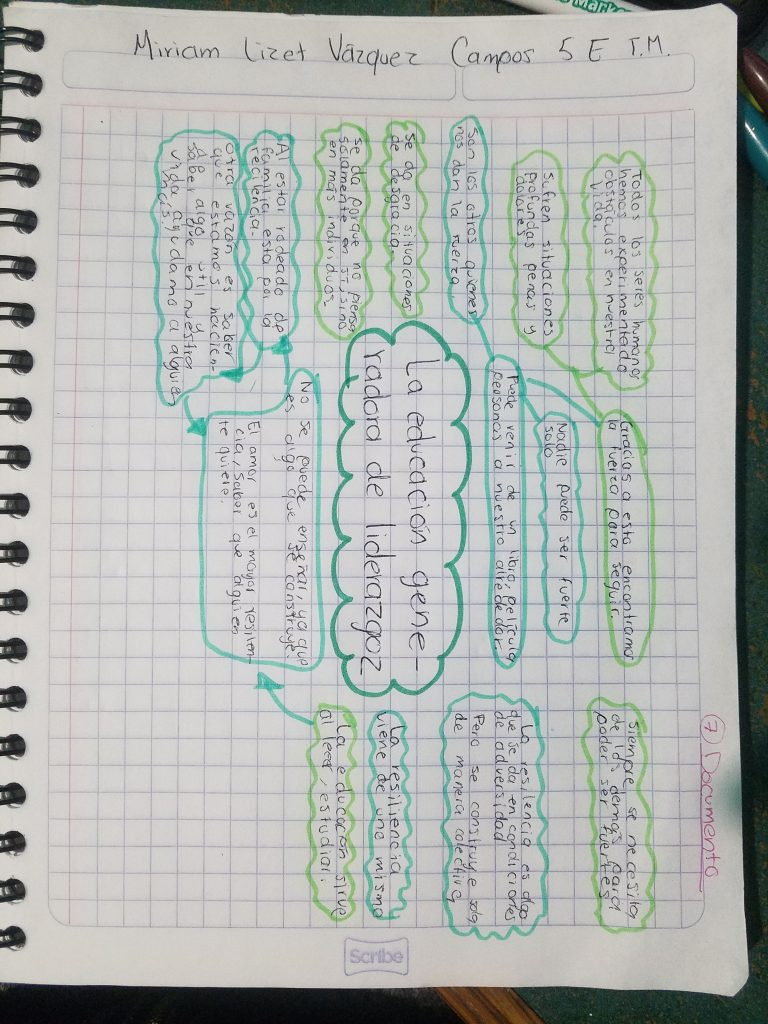 Miriam Lizet Vázquez Campos 5 E T.M.
⑦ Documento
Todos los seres humanos
hemos experimentado
obstáculos en nuestra
vida.
Sufren situaciones
profundas penas y
dolores
Son los otros quienes
nos dan la fuerza
Se da en situaciones
de desgracia.
Se da porque no piensa
solamente en si, sino
en más individuos
Al estar rodeado de
familia esta por la
recilencia.
otra razon es saber
que estamos hacien-
do algo util y
saber algo en nuestra
vida ayudamo a alguie
más.
Gracias a esto encontramos
la fuerza para seguir.
Nadie puede ser fuerte
solo
Puede venir de un libro, película
personas a nuestro alrededor.
La educación gene-
radora de liderazgoz
No se puede enseñar, ya que
es algo que se construye.
El amor es el mayor resilen-
cia, saber que alguien
te quiere.
Siempre se necesita
de los demás para
poder ser fuertes
La resilencia es algo
que se da en condiciones
de adversidad
Pero se construye solo
de manera colectiva
La resiliencia
viene de uno mismo
La educación sirve
al leer, estudiar.
Scribe